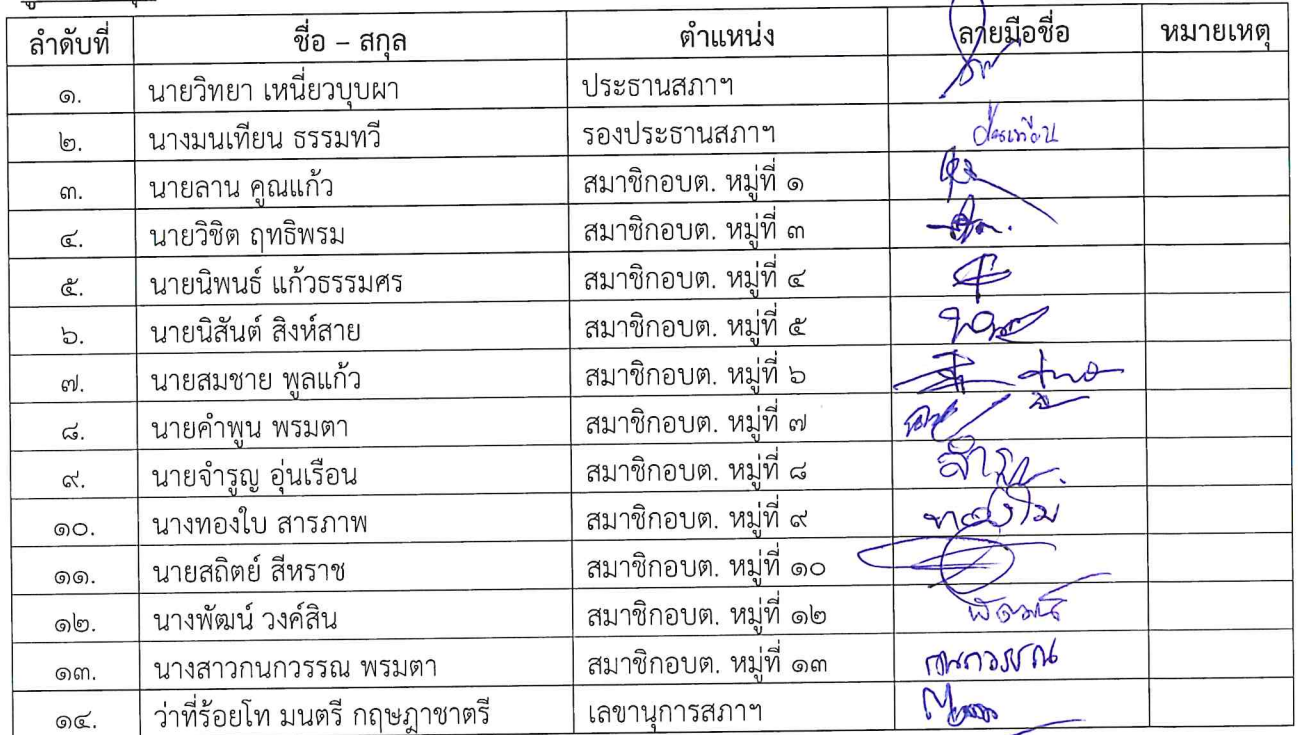 ลำดับที่ ชื่อ – สกุล ตำแหน่ง ลายมือชื่อ หมายเหตุ
๑. นายวิทยา เหนี่ยวบุบผา ประธานสภาฯ
๒. นางมนเทียน ธรรมทวี รองประธานสภาฯ มนเทียน
๓. นายลาน คูณแก้ว สมาชิกอบต. หมู่ที่ ๑
๔. นายวิชิต ฤทธิพรม สมาชิกอบต. หมู่ที่ ๓
๕. นายนิพนธ์ แก้วธรรมศร สมาชิกอบต. หมู่ที่ ๔
๖. นายนิสันต์ สิงห์สาย สมาชิกอบต. หมู่ที่ ๕
๗. นายสมชาย พูลแก้ว สมาชิกอบต. หมู่ที่ ๖
๘. นายคำพูน พรมตา สมาชิกอบต. หมู่ที่ ๗
๙. นายจำรูญ อุ่นเรือน สมาชิกอบต. หมู่ที่ ๘ จำรูญ
๑๐. นางทองใบ สารภาพ สมาชิกอบต. หมู่ที่ ๙ ทองใบ
๑๑. นายสถิตย์ สีหราช สมาชิกอบต. หมู่ที่ ๑๐
๑๒. นางพัฒน์ วงค์สิน สมาชิกอบต. หมู่ที่ ๑๒ พัฒน์
๑๓. นางสาวกนกวรรณ พรมตา สมาชิกอบต. หมู่ที่ ๑๓ กนกวรรณ
๑๔. ว่าที่ร้อยโท มนตรี กฤษฎาชาตรี เลขานุการสภาฯ